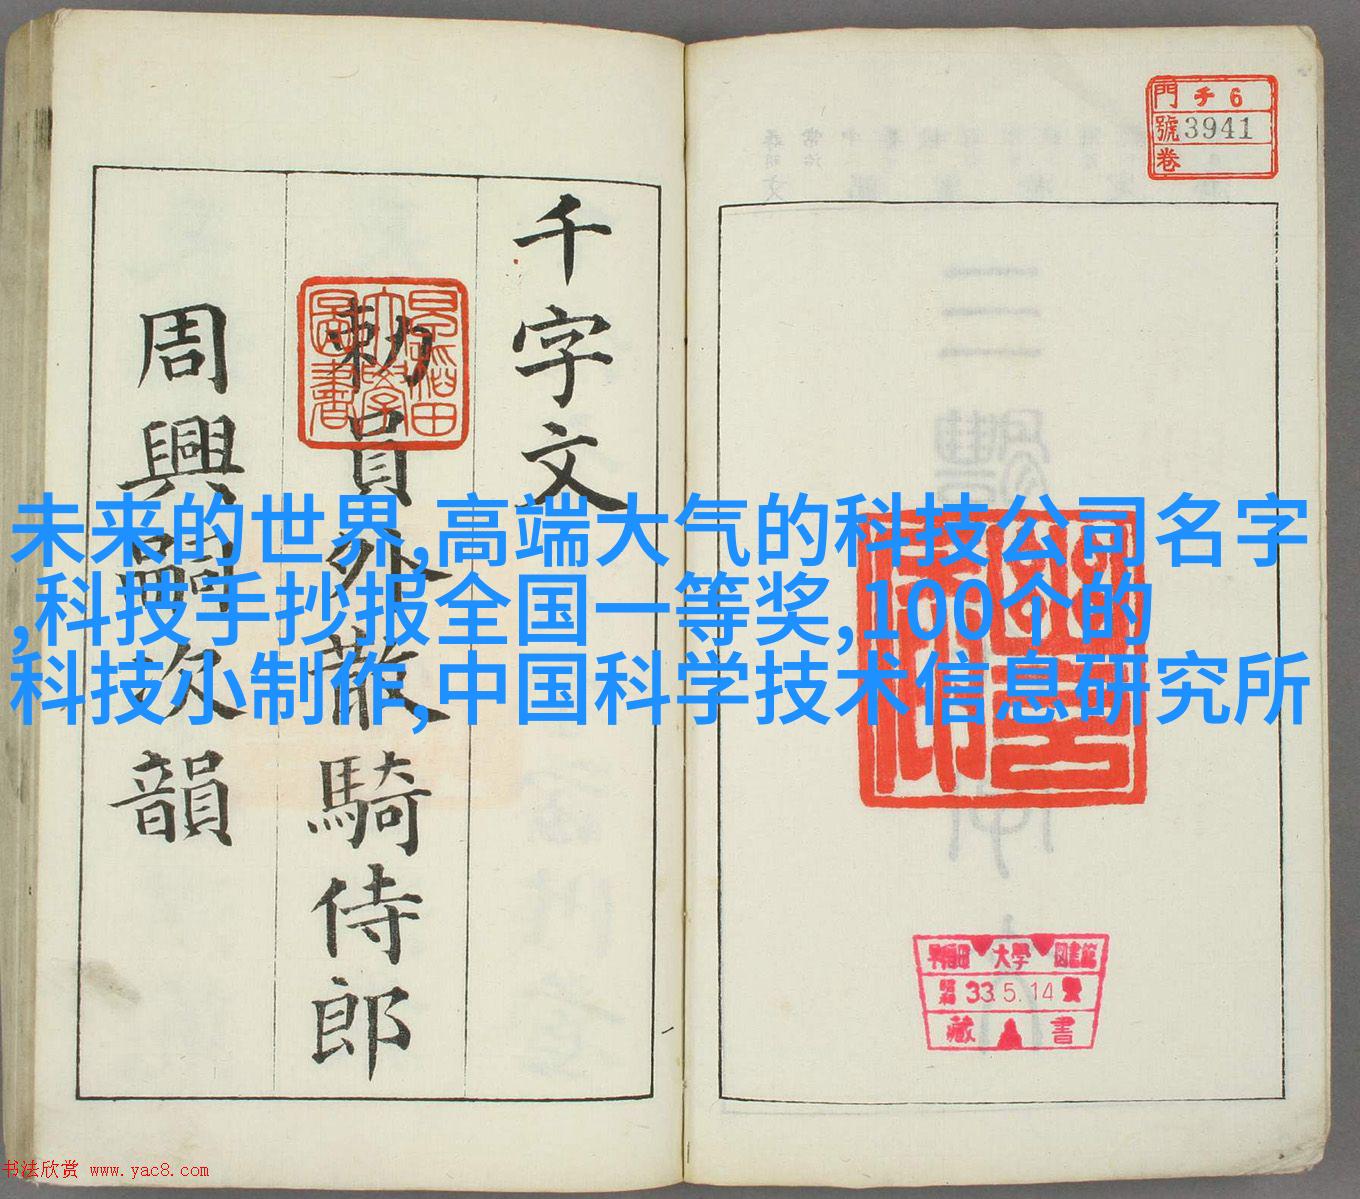 門 チ 6
號 3941
卷
千字文
勅員外散騎侍郎
周興嗣次韻
早稲田大學圖書
未来的世界,高端大气的科技公司名字
,科技手抄报全国一等奖,100个的
科技小制作,中国科学技术信息研究所
早稲田 大學 圖書館
昭和 33.5.14
藏書
书法欣赏 www.yac8.com